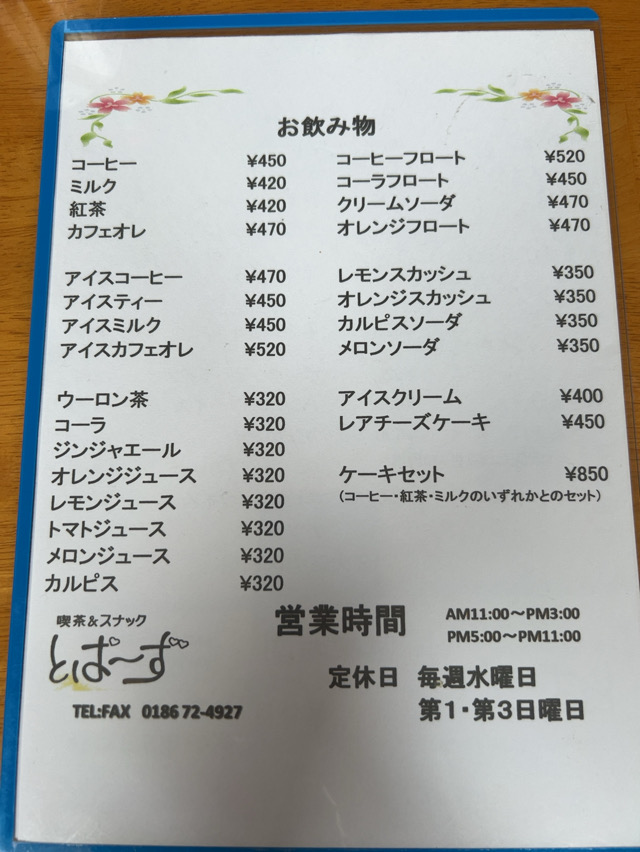 お飲み物
コーヒー ¥450
ミルク ¥420
紅茶 ¥420
カフェオレ ¥470
アイスコーヒー ¥470
アイスティー ¥450
アイスミルク ¥450
アイスカフェオレ ¥520
ウーロン茶 ¥320
コーラ ¥320
ジンジャエール ¥320
オレンジジュース ¥320
レモンジュース ¥320
トマトジュース ¥320
メロンジュース ¥320
カルピス ¥320
コーヒーフロート ¥520
コーラフロート ¥450
クリームソーダ ¥470
オレンジフロート ¥470
レモンスカッシュ ¥350
オレンジスカッシュ ¥350
カルピスソーダ ¥350
メロンソーダ ¥350
アイスクリーム ¥400
レアチーズケーキ ¥450
ケーキセット ¥850
(コーヒー・紅茶・ミルクのいずれかとのセット)
喫茶&スナック
とぱ〜ず
TEL:FAX 0186 72-4927
営業時間 AM11:00〜PM3:00
PM5:00〜PM11:00
定休日 毎週水曜日
第1・第3日曜日